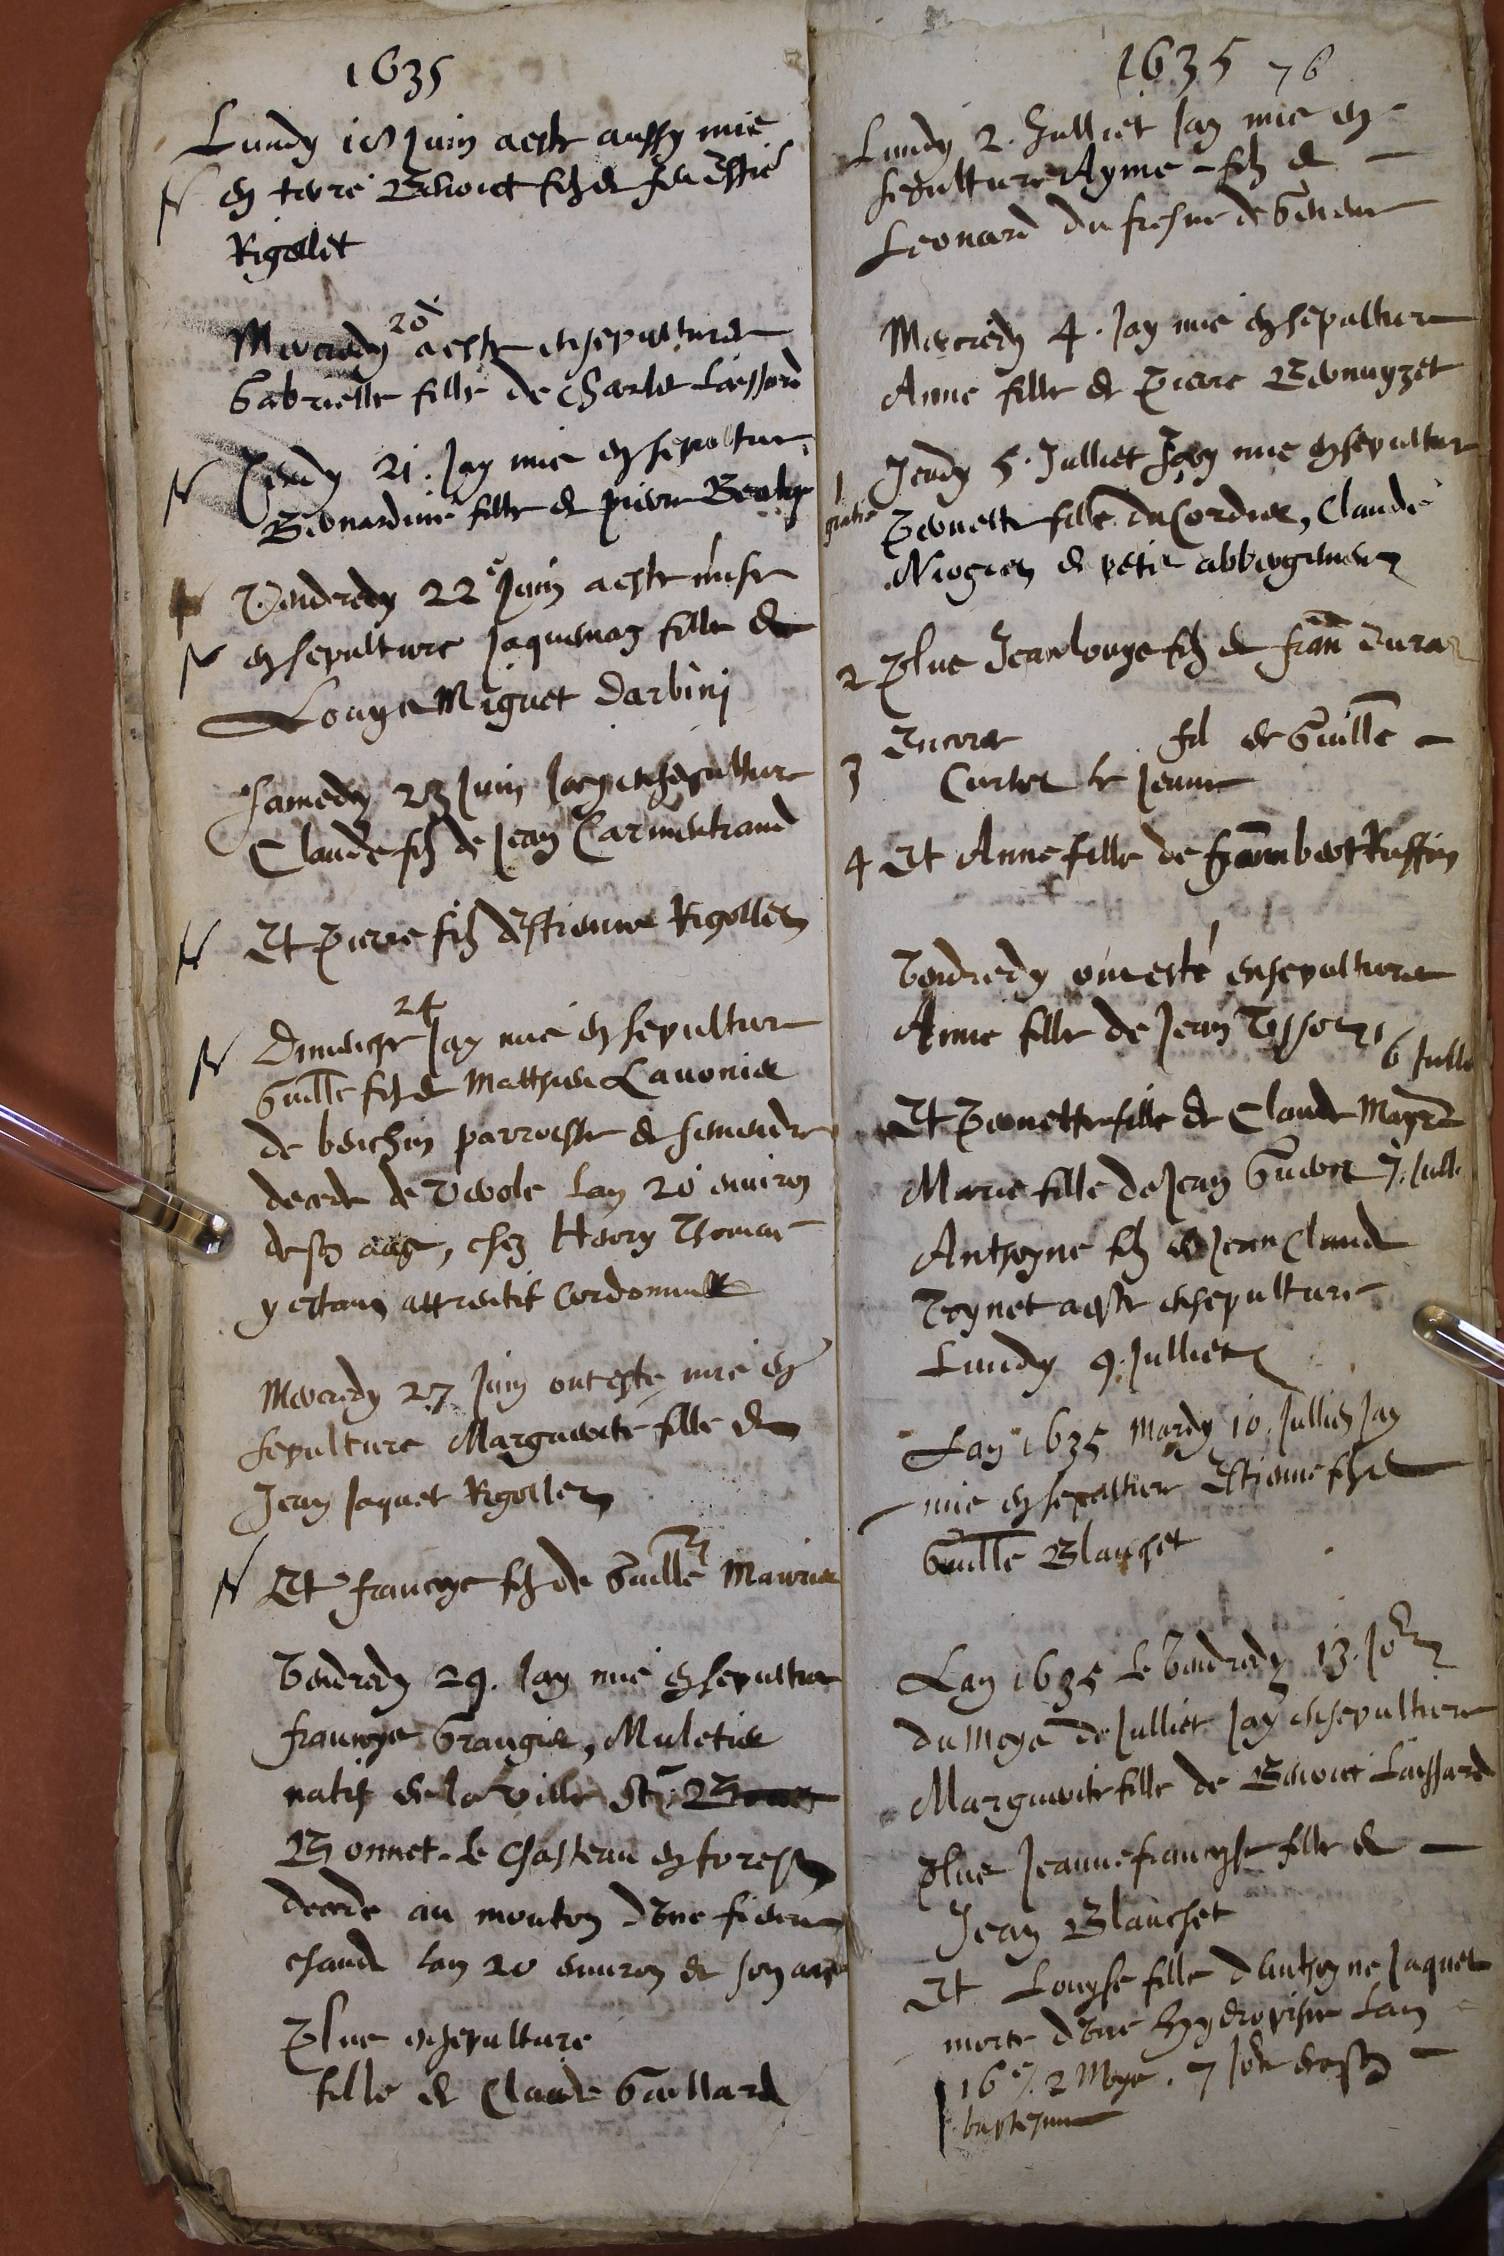 1635
Lundy 18 Juin a este aussy mis
en terre Benoict filz de feu Estie
Rigollet
Mercredy 20 a este ensepulture
Gabrielle fille de Charlet Laissard
Jeudy 21. Jay mis en sepulture
Bernardine fille de pierre
Vendredy 22 Juin a este mise
en sepulture Jaquemaz fille de
Louys Miguet Darbini
Samedy 23 Juin Jay ensepulture
Claude filz de Jean Carmentrand
Et Pierre filz destienne Rigollet
Dimenche 24 Jay mis en sepulture
Guille filz de Mathieu Lavonie
de parroisse de
decede de Verole lan 20 environ
de son aage, chez
y estant Cordonnie
Mercredy 27 Juin ont este mis en
sepulture Marguerite fille de
Jean Jaquet Rigollet
Et francoys filz de Guille Maurie
Vendredy 29. Jay mis en sepulture
francoys Grangie, Muletie
natif de la ville St
Bonnet le Chasteau en forest
decede au mouton dune fievre
chaude lan 20 environ de son aage
Plus ensepulture
fille de Claude Gaillard
1635 76
Lundy 2. Julliet Jay mis en
sepulture Ayme filz de
Leonard du fresne de
Mercredy 4. Jay mis en sepulture
Anne fille de Pierre
Jeudy 5. Julliet Jay mis en sepulture
1 Pernette fille du Cordie, Claude
gratis
de petit abbergement
2 Plus Jean louys filz de fran
3 Encore fil de Guille
Curtet le Jeune
4 Et Anne fille de Ruffin
Vendredy ont esté ensepulture
Anne fille de Jean Tissot 6 Jull
Et Pernette fille de Claude
Marie fille de Jean 7. Jull
Anthoyne filz de Jean Claude
Poynet a este ensepulture
Lundy 9. Julliet
Lan 1635 Mardy 10. Julliet Jay
mis en sepulture Estienne filz de
Guille Blanchet
Lan 1635 le Vendredy 13. Jour
du Moys de Julliet Jay ensepulture
Marguerite fille de Benoict Laissard
Plus Jeanne francoyse fille de
Jean Blanchet
Et Louyse fille dAnthoyne Jaquet
morte dune hydropisie lan
16e. 2 Moys. 7 Jour de son
baptesme